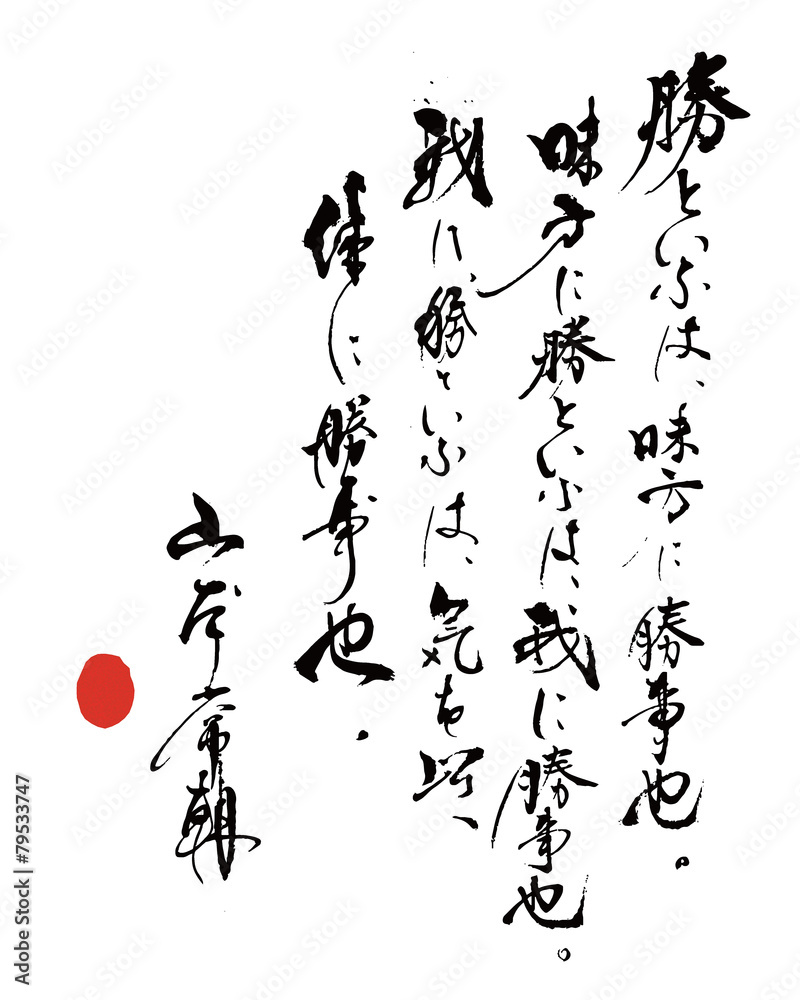 勝といふは、味方に勝事也。
味方に勝といふは、我に勝事也。
我に、勝といふは、気を以、
体に勝事也.
山本常朝
Adobe Stock | #79533747
Adobe Stock